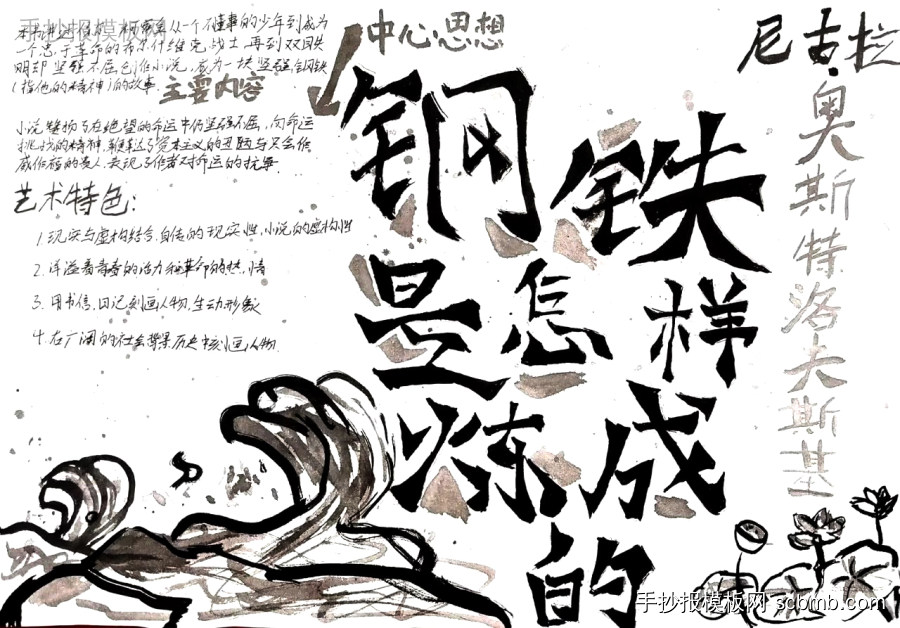 手抄报模板网
本书讲述保尔·柯察金从一个不懂事的少年到成为
一个忠于革命的布尔什维克战士,再到双目失
明却坚强不屈创作小说,成为一块坚强钢铁
(指他的精神)的故事.
主要内容
中心思想
小说赞扬了在绝望的命运中仍坚强不屈,向命运
挑战的精神,鞭挞了资本主义的丑陋与只会作
威作福的贵人,表现了作者对命运的抗争
艺术特色:
1.现实与虚构结合.自传的现实性,小说的虚构性
2.洋溢着青春的活力和革命的热情
3.用书信、日记刻画人物,生动形象
4.在广阔的社会背景历史中刻画人物
钢铁
是怎样
炼成
的
尼古拉
·奥斯特洛夫斯基
手抄报模板网 scbmb.com